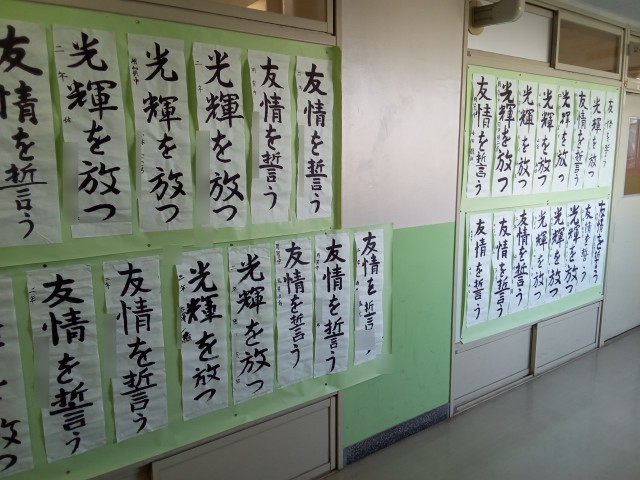 友情を誓う
光輝を放つ
二年
光輝を放つ
光輝を放つ
友情を誓う
友情を誓う
放つ
友情を誓う
二年
友情を誓う
光輝を放つ
二年
光輝を放つ
友情を誓う
友情を誓う
友情を誓う
友情を誓う
光輝を放つ
光輝を放つ
光輝を放つ
光輝を放つ
友情を誓う
光輝を放つ
友情を誓う
友情を誓う
友情を誓う
友情を誓う
光輝を放つ
光輝を放つ
光輝を放つ
友情を誓う
友情を誓う